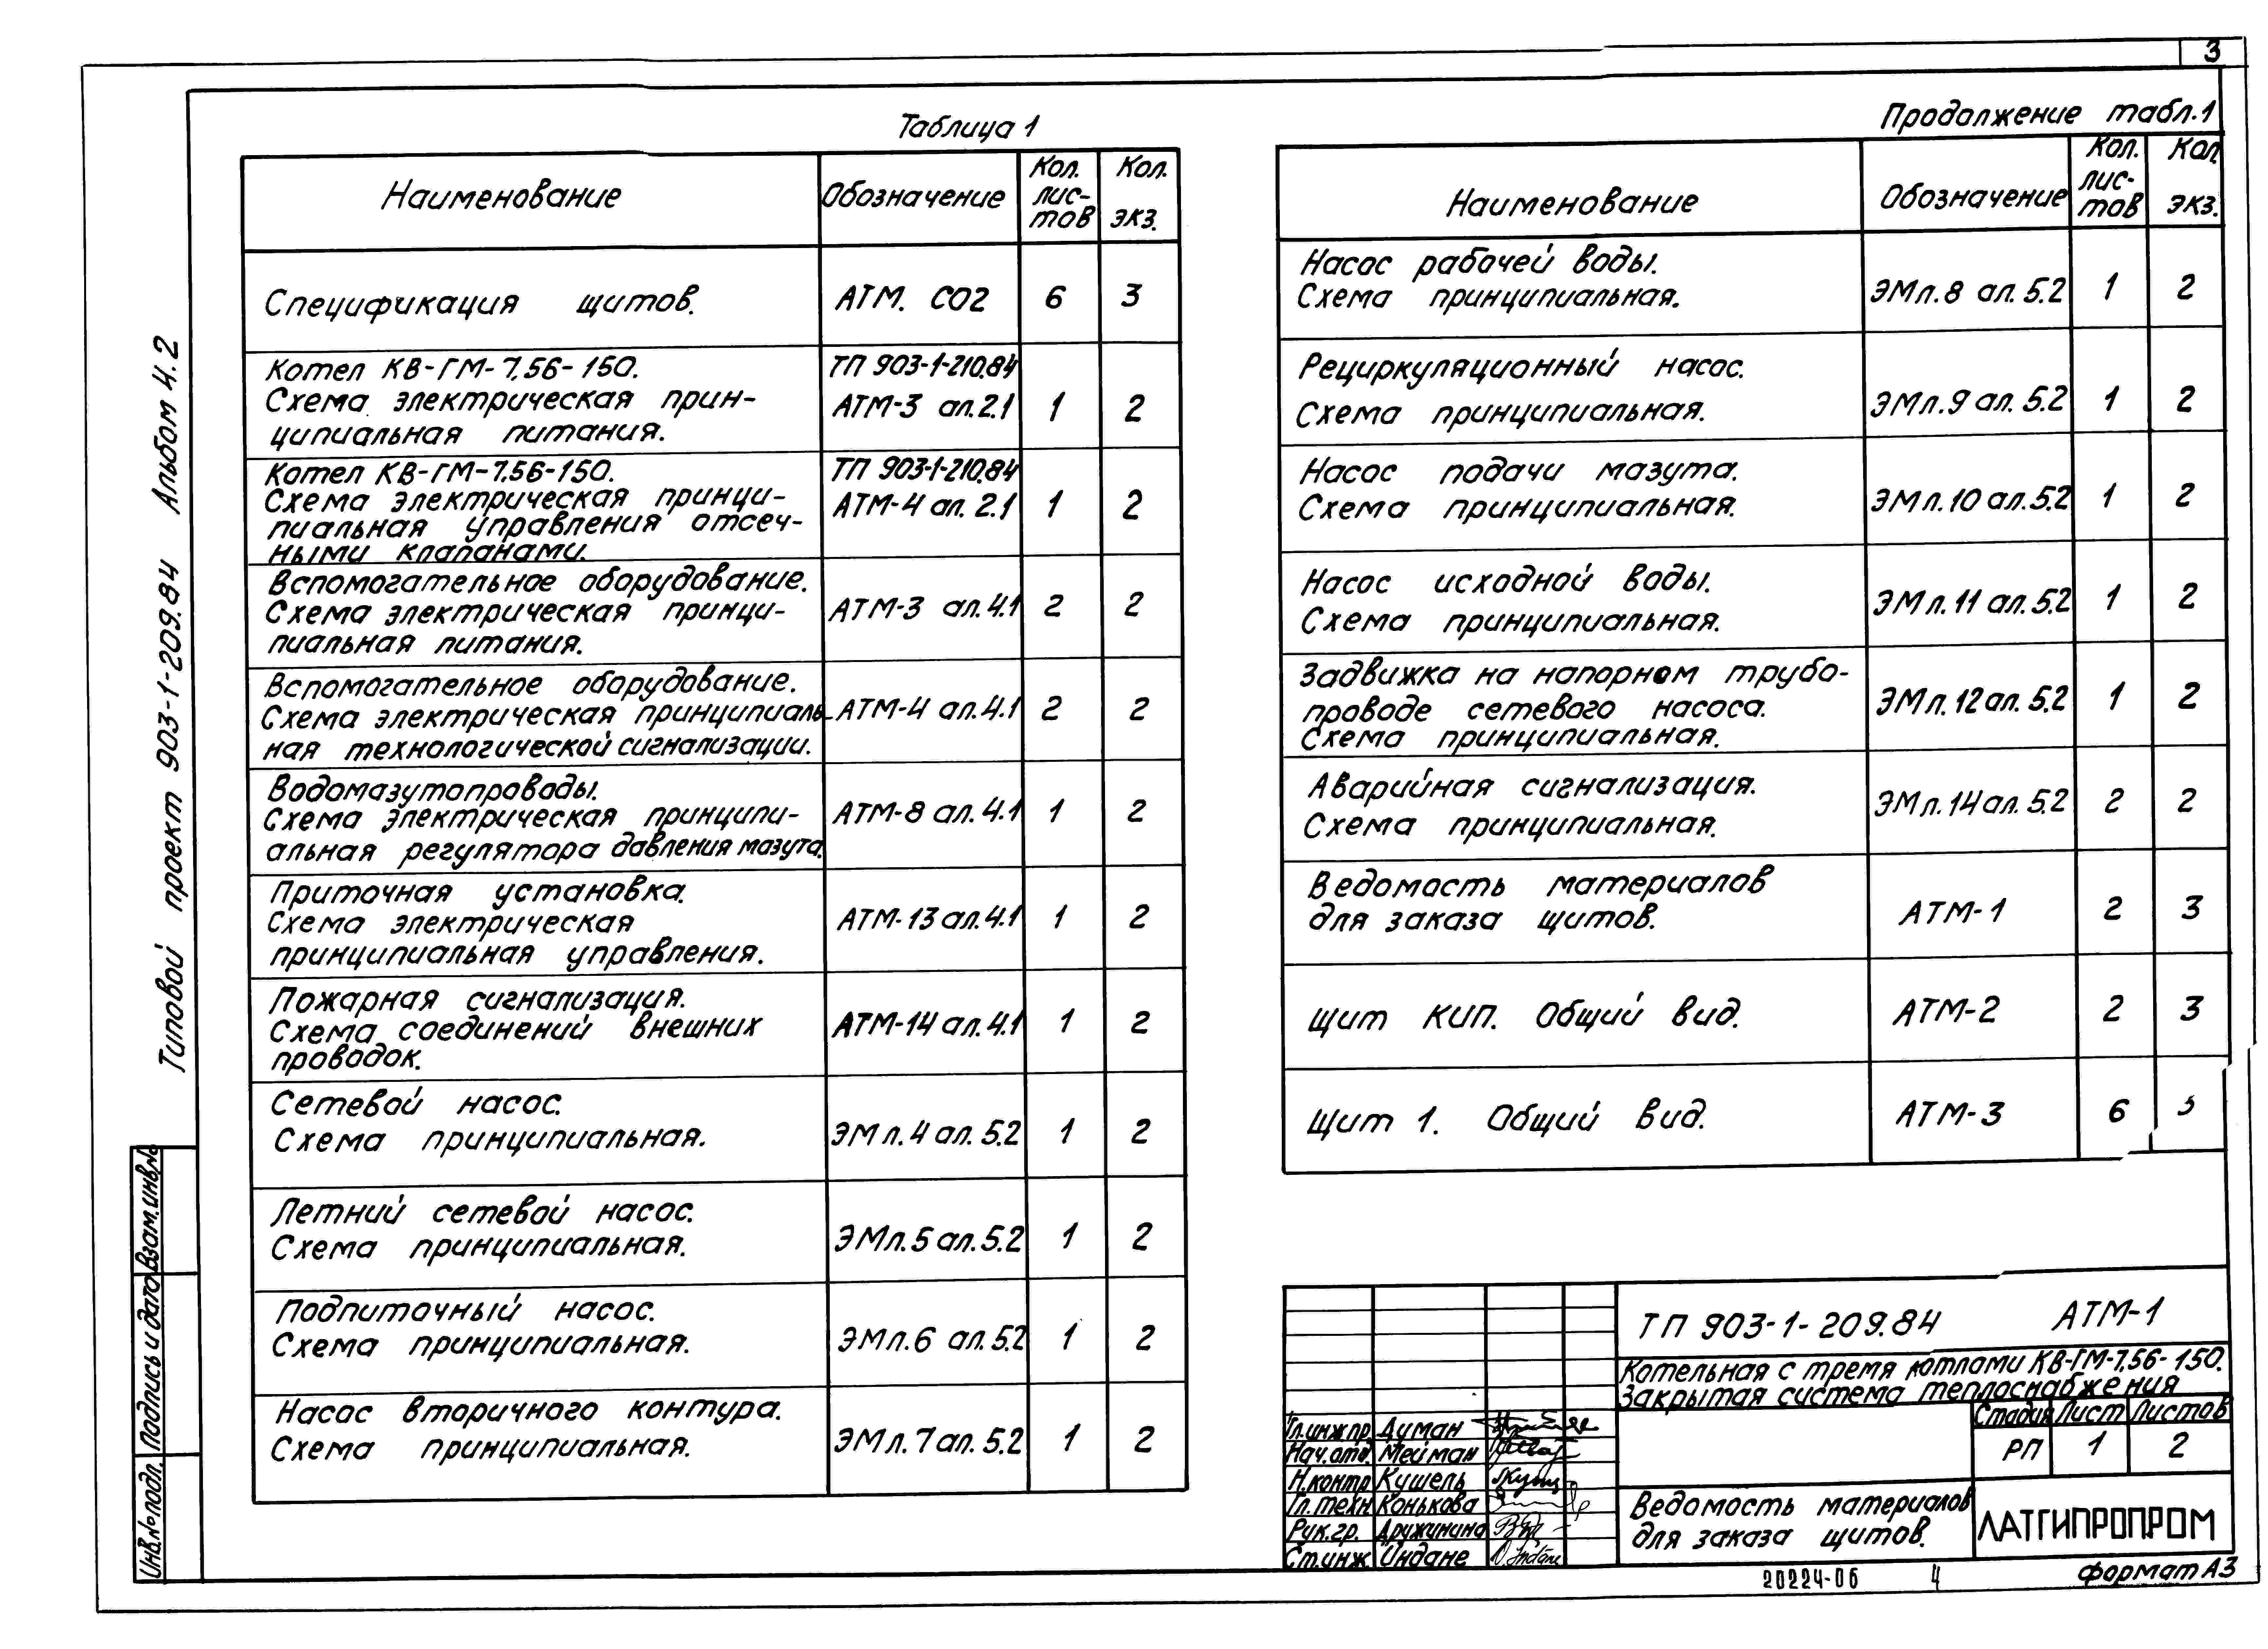 3
Таблица 1
Наименование
Обозначение
Кол. лис- тов
Кол. экз.
Спецификация щитов.
АТМ. СО2
6
3
Котел КВ-ГМ-7,56-150.
Схема электрическая прин-
ципиальная питания.
ТП 903-1-210.84
АТМ-3 ал.2.1
1
2
Котел КВ-ГМ-7.56-150.
Схема электрическая принци-
пиальная управления отсеч-
ными клапанами.
ТП 903-1-210.84
АТМ-4 ал. 2.1
1
2
Вспомогательное оборудование.
Схема электрическая принци-
пиальная питания.
АТМ-3 ал.4.1
2
2
Вспомогательное оборудование.
Схема электрическая принципиаль-
ная технологической сигнализации.
АТМ-4 ал.4.1
2
2
Водомазутопроводы.
Схема электрическая принципи-
альная регулятора давления мазута.
АТМ-8 ал.4.1
1
2
Приточная установка.
Схема электрическая
принципиальная управления.
АТМ-13 ал.4.1
1
2
Пожарная сигнализация.
Схема соединений внешних
проводок.
АТМ-14 ал.4.1
1
2
Сетевой насос.
Схема принципиальная.
ЭМ л.4 ал. 5.2
1
2
Летний сетевой насос.
Схема принципиальная.
ЭМл.5 ал.5.2
1
2
Подпиточный насос.
Схема принципиальная.
ЭМл.6 ал.5.2
1
2
Насос вторичного контура.
Схема принципиальная.
ЭМл.7 ал. 5.2
1
2
Продолжение табл.1
Наименование
Обозначение
Кол. лис- тов
Кол. экз.
Насос рабочей воды.
Схема принципиальная.
ЭМл.8 ал. 5.2
1
2
Рециркуляционный насос.
Схема принципиальная.
ЭМл.9 ал. 5.2
1
2
Насос подачи мазута.
Схема принципиальная.
ЭМл.10 ал.5.2
1
2
Насос исходной воды.
Схема принципиальная.
ЭМл.11 ал.5.2
1
2
Задвижка на напорном трубо-
проводе сетевого насоса.
Схема принципиальная.
ЭМл.12 ал. 5.2
1
2
Аварийная сигнализация.
Схема принципиальная.
ЭМл.14 ал. 5.2
2
2
Ведомость материалов
для заказа щитов.
АТМ-1
2
3
Щит КИП. Общий вид.
АТМ-2
2
3
Щит 1. Общий вид.
АТМ-3
6
Типовой проект 903-1-209.84 Альбом 4.2
Инв.№ подл.
Подпись и дата
Взам.инв.№
ТП 903-1-209.84 АТМ-1
Котельная с тремя котлами КВ-ГМ-7.56-150.
Закрытая система теплоснабжения
Стадия Лист Листов
РП 1 2
Гл.инж.пр. Думан
Нач.отд. Мейман
Н.контр Кушель
Гл.техн. Конькова
Рук.гр. Дружинина
Ст.инж Индане
Ведомость материалов
для заказа щитов.
ЛАТГИПРОПРОМ
20224-06 4
формат А3